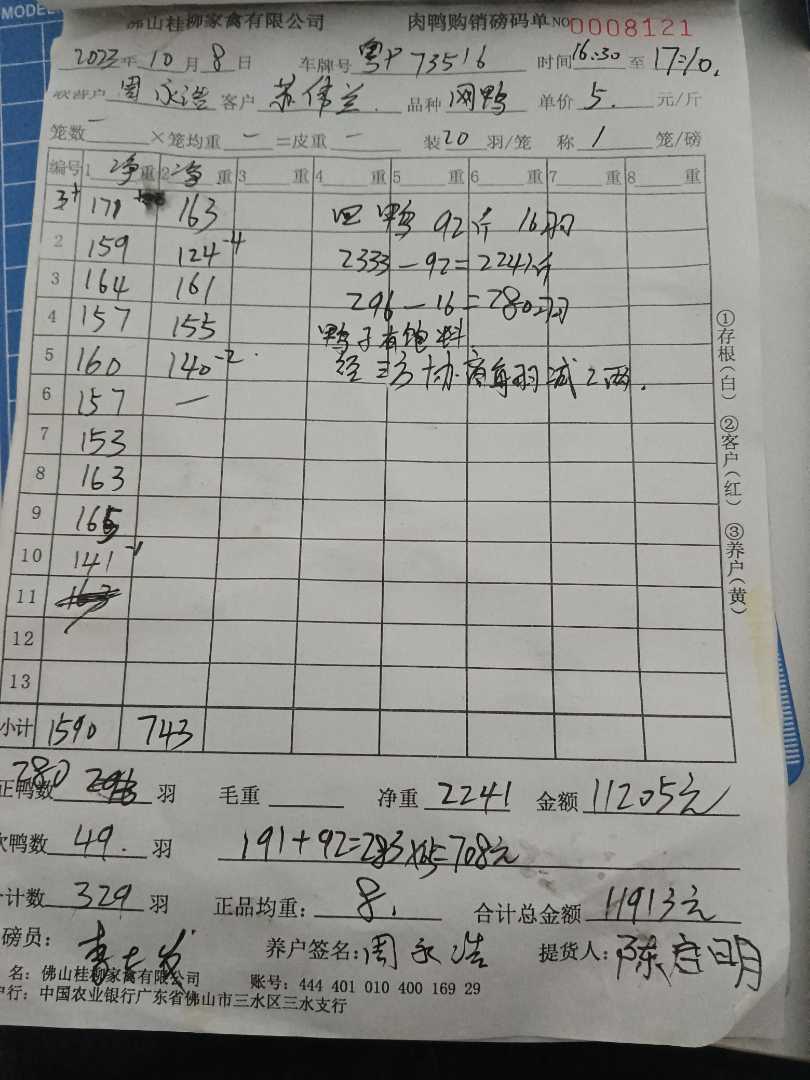 MODEL
佛山桂柳家禽有限公司 肉鸭购销磅码单 NO 0008121
2023年10月8日 车牌号 粤P73516 时间16:30至17:10.
联营户 周永浩 客户 苏伟兰. 品种 网鸭 单价 5. 元/斤
笼数 一 ×笼均重 一 =皮重 一 装20羽/笼 称 1 笼/磅
编号 1 净重 2 净 3 重 4 重 5 重 6 重 7 重 8 重
171 163 回鸭 92斤 16羽
2 159 124-4 2333-92=2241斤
3 164 161 296-16=280羽
4 157 155 鸭子有饱料.
5 160 140-2 经三方协商每羽减2两.
6 157 一
7 153
8 163
9 165
10 141-1
11 163
12
13
小计 1590 743
正鸭数 280 296 羽 毛重 净重 2241 金额 11205元
次鸭数 49. 羽 191+92=283×2.5=708元
合计数 329 羽 正品均重: 8. 合计总金额 11913元
磅员: 养户签名: 周永浩 提货人:
名: 佛山桂柳家禽有限公司 账号: 444 401 010 400 169 29
户行: 中国农业银行广东省佛山市三水区三水支行
①存根(白) ②客户(红) ③养户(黄)